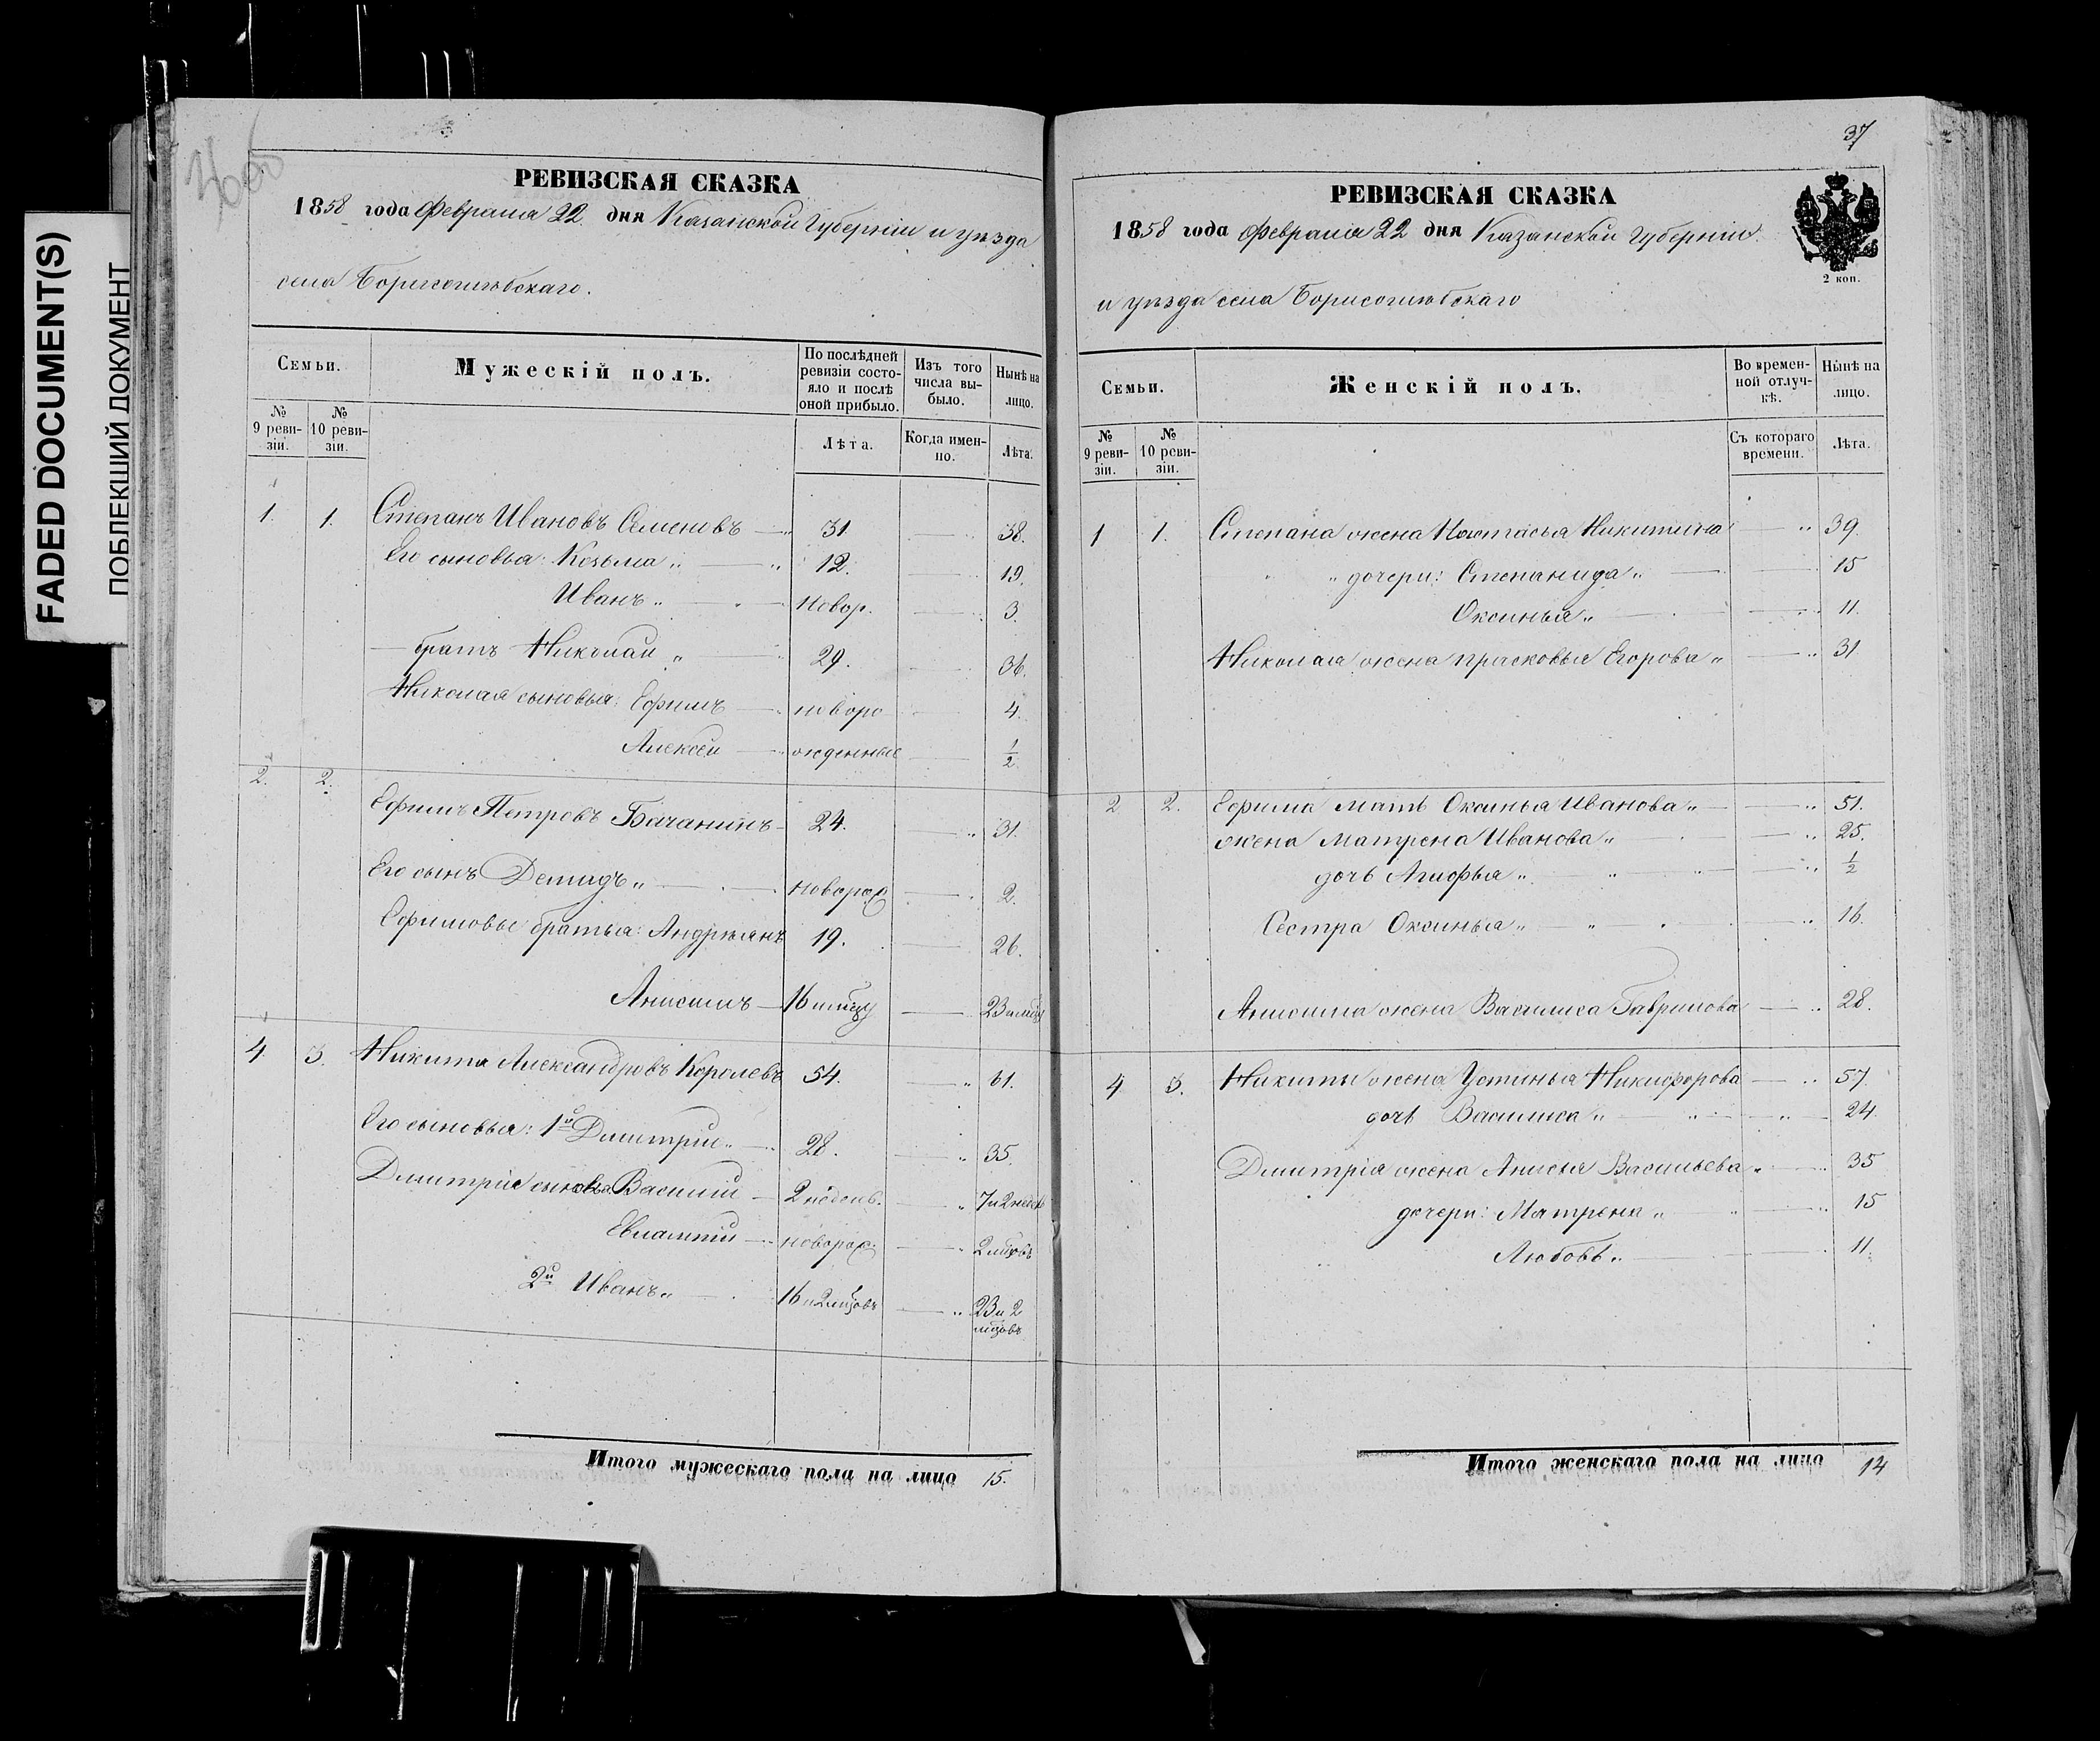 FADED DOCUMENT(S)
ПОБЛЕКШИЙ ДОКУМЕНТ
РЕВИЗСКАЯ СКАЗКА
1858 года Февраля 22 дня Казанской Губерніи и уѣзда
села Борисоглѣбскаго.
Семьи.
Мужескій полъ.
По послѣдней ревизіи состояло и послѣ оной прибыло.
Изъ того числа выбыло.
Нынѣ на лицо.
№ 9 ревизіи.
№ 10 ревизіи.
Лѣта.
Когда именно.
Лѣта.
1. 1. Степанъ Ивановъ Семеновъ 31 38.
Его сыновья: Козьма 12. 19.
Иванъ новор. 3.
братъ Николай 29. 36.
Николая сыновья: Ефимъ новоро 4.
Алексѣй жденные ½
2. 2. Ефимъ Петровъ Бачанинъ 24. 31.
Его сынъ Демидъ новорож 2.
Ефимовы братья: Андреянъ 19. 26.
Анисимъ 16 23
4. 3. Никита Александровъ Королевъ 54. 61.
Его сыновья: 1й Дмитрій 28. 35.
Дмитрія сыновья Василій 2 недель. 7 и 2 недель
Евлампій новорож. 2 мцовъ
2й Иванъ 16 и 2 мцовъ 23 и 2
мцовъ
Итого мужескаго пола на лицо 15.
37
РЕВИЗСКАЯ СКАЗКА
1858 года Февраля 22 дня Казанской Губерніи.
2 коп.
и уѣзда села Борисоглѣбскаго
Семьи.
Женскій полъ.
Во временной отлучкѣ.
Нынѣ на лицо.
№ 9 ревизіи.
№ 10 ревизіи.
Съ котораго времени.
Лѣта.
1 1. Степана жена Настасья Никитина 39.
дочери: Степанида 15
Оксинья 11.
Николая жена Прасковья Егорова 31
2 2. Ефима мать Оксинья Иванова 51.
жена Матрена Иванова 25.
дочь Агиофья ½
Сестра Оксинья 16.
Анисима жена Василиса Гаврилова 28.
4 3. Никиты жена Устинья Никифорова 57.
дочь Василиса 24.
Дмитрія жена Анисья Васильева 35
дочери: Матрена 15
Любовь 11.
Итого женскаго пола на лицо 14